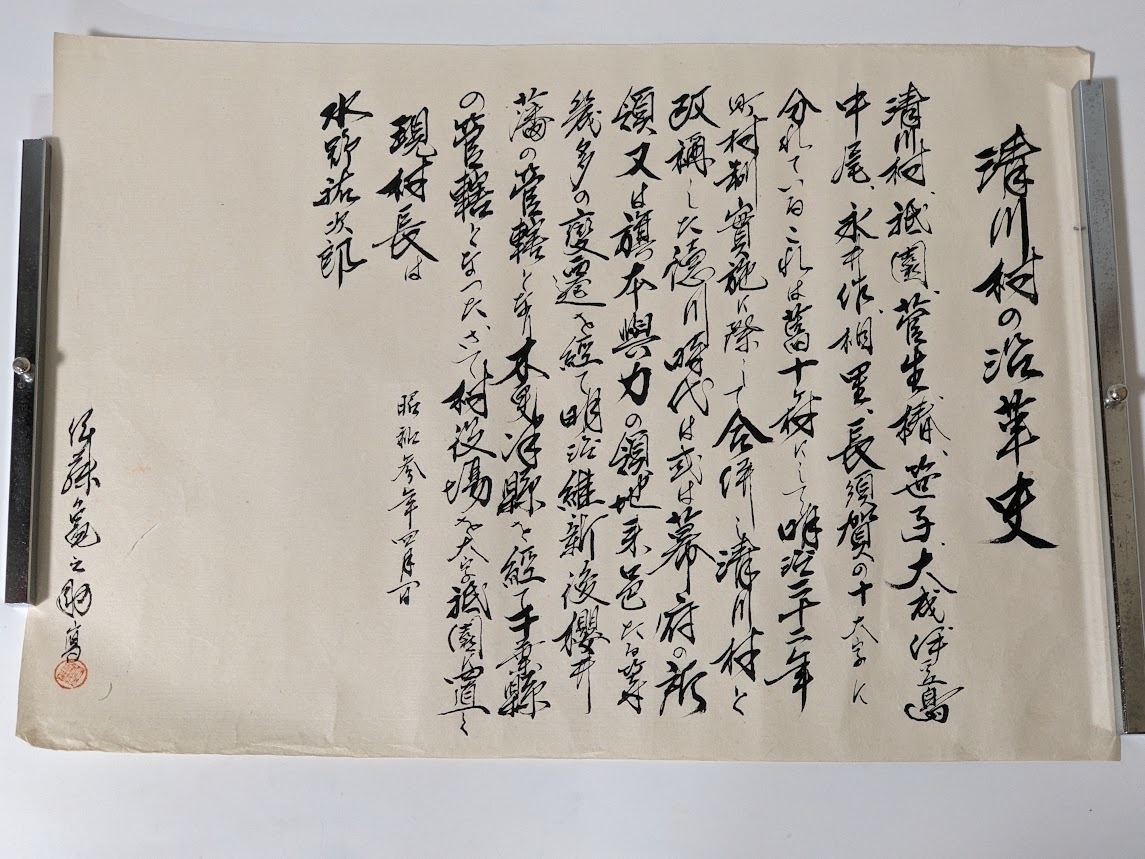 清川村の沿革史
清川村、祇園、菅生、椿、笹子、大成、伊豆島
中尾、永井作、相里、長須賀の十大字に
分れているこれは舊十ヶ村にして明治二十二年
町村制實施に際して合併し清川村と
改稱した徳川時代は或は幕府の所
領又は旗本與力の領地釆邑たる等
幾多の變遷を經て明治維新後櫻井
藩の管轄となり木更津縣を經て千葉縣
の管轄となったさて村役場を大字祇園に置く
現村長は
水野祐次郎
昭和参年四月
伊藤亀之助寫